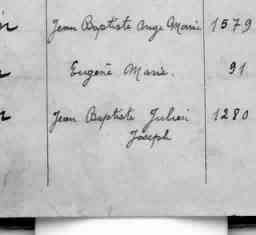 Jean Baptiste Ange Marie 1579
Eugène Marie. 91
Jean Baptiste Julien 1280
Joseph